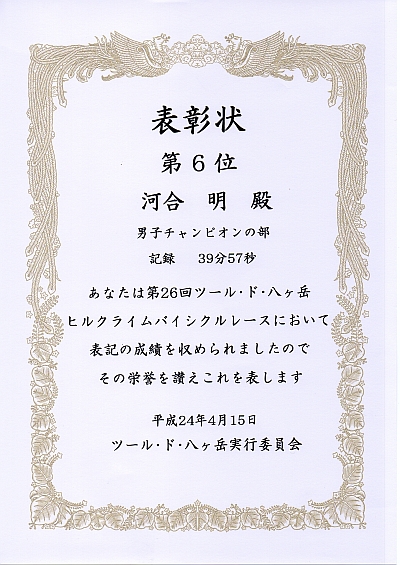 表彰状
第6位
河合 明 殿
男子チャンピオンの部
記録 39分57秒
あなたは第26回ツール・ド・八ヶ岳
ヒルクライムバイシクルレースにおいて
表記の成績を収められましたので
その栄誉を讃えこれを表します
平成24年4月15日
ツール・ド・八ヶ岳実行委員会